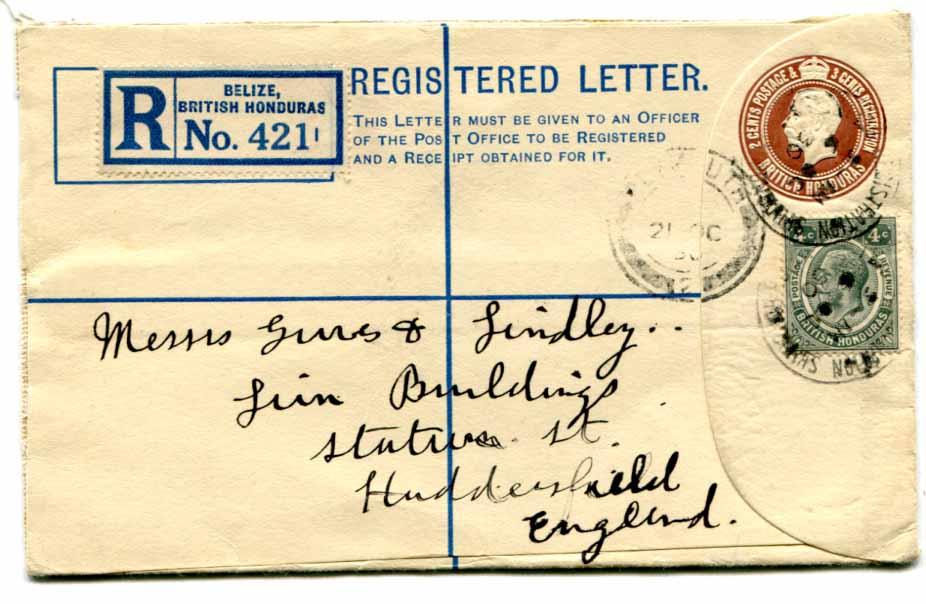 REGISTERED LETTER.
THIS LETTER MUST BE GIVEN TO AN OFFICER
OF THE POST OFFICE TO BE REGISTERED
AND A RECEIPT OBTAINED FOR IT.
R
BELIZE,
BRITISH HONDURAS
No. 421
2 CENTS POSTAGE & 3 CENTS REGISTRATION
BRITISH HONDURAS
21 OC
4c 4c
POSTAGE & REVENUE
BRITISH HONDURAS
Messrs & Lindley.
Buildings
St.
Huddersfield
England.